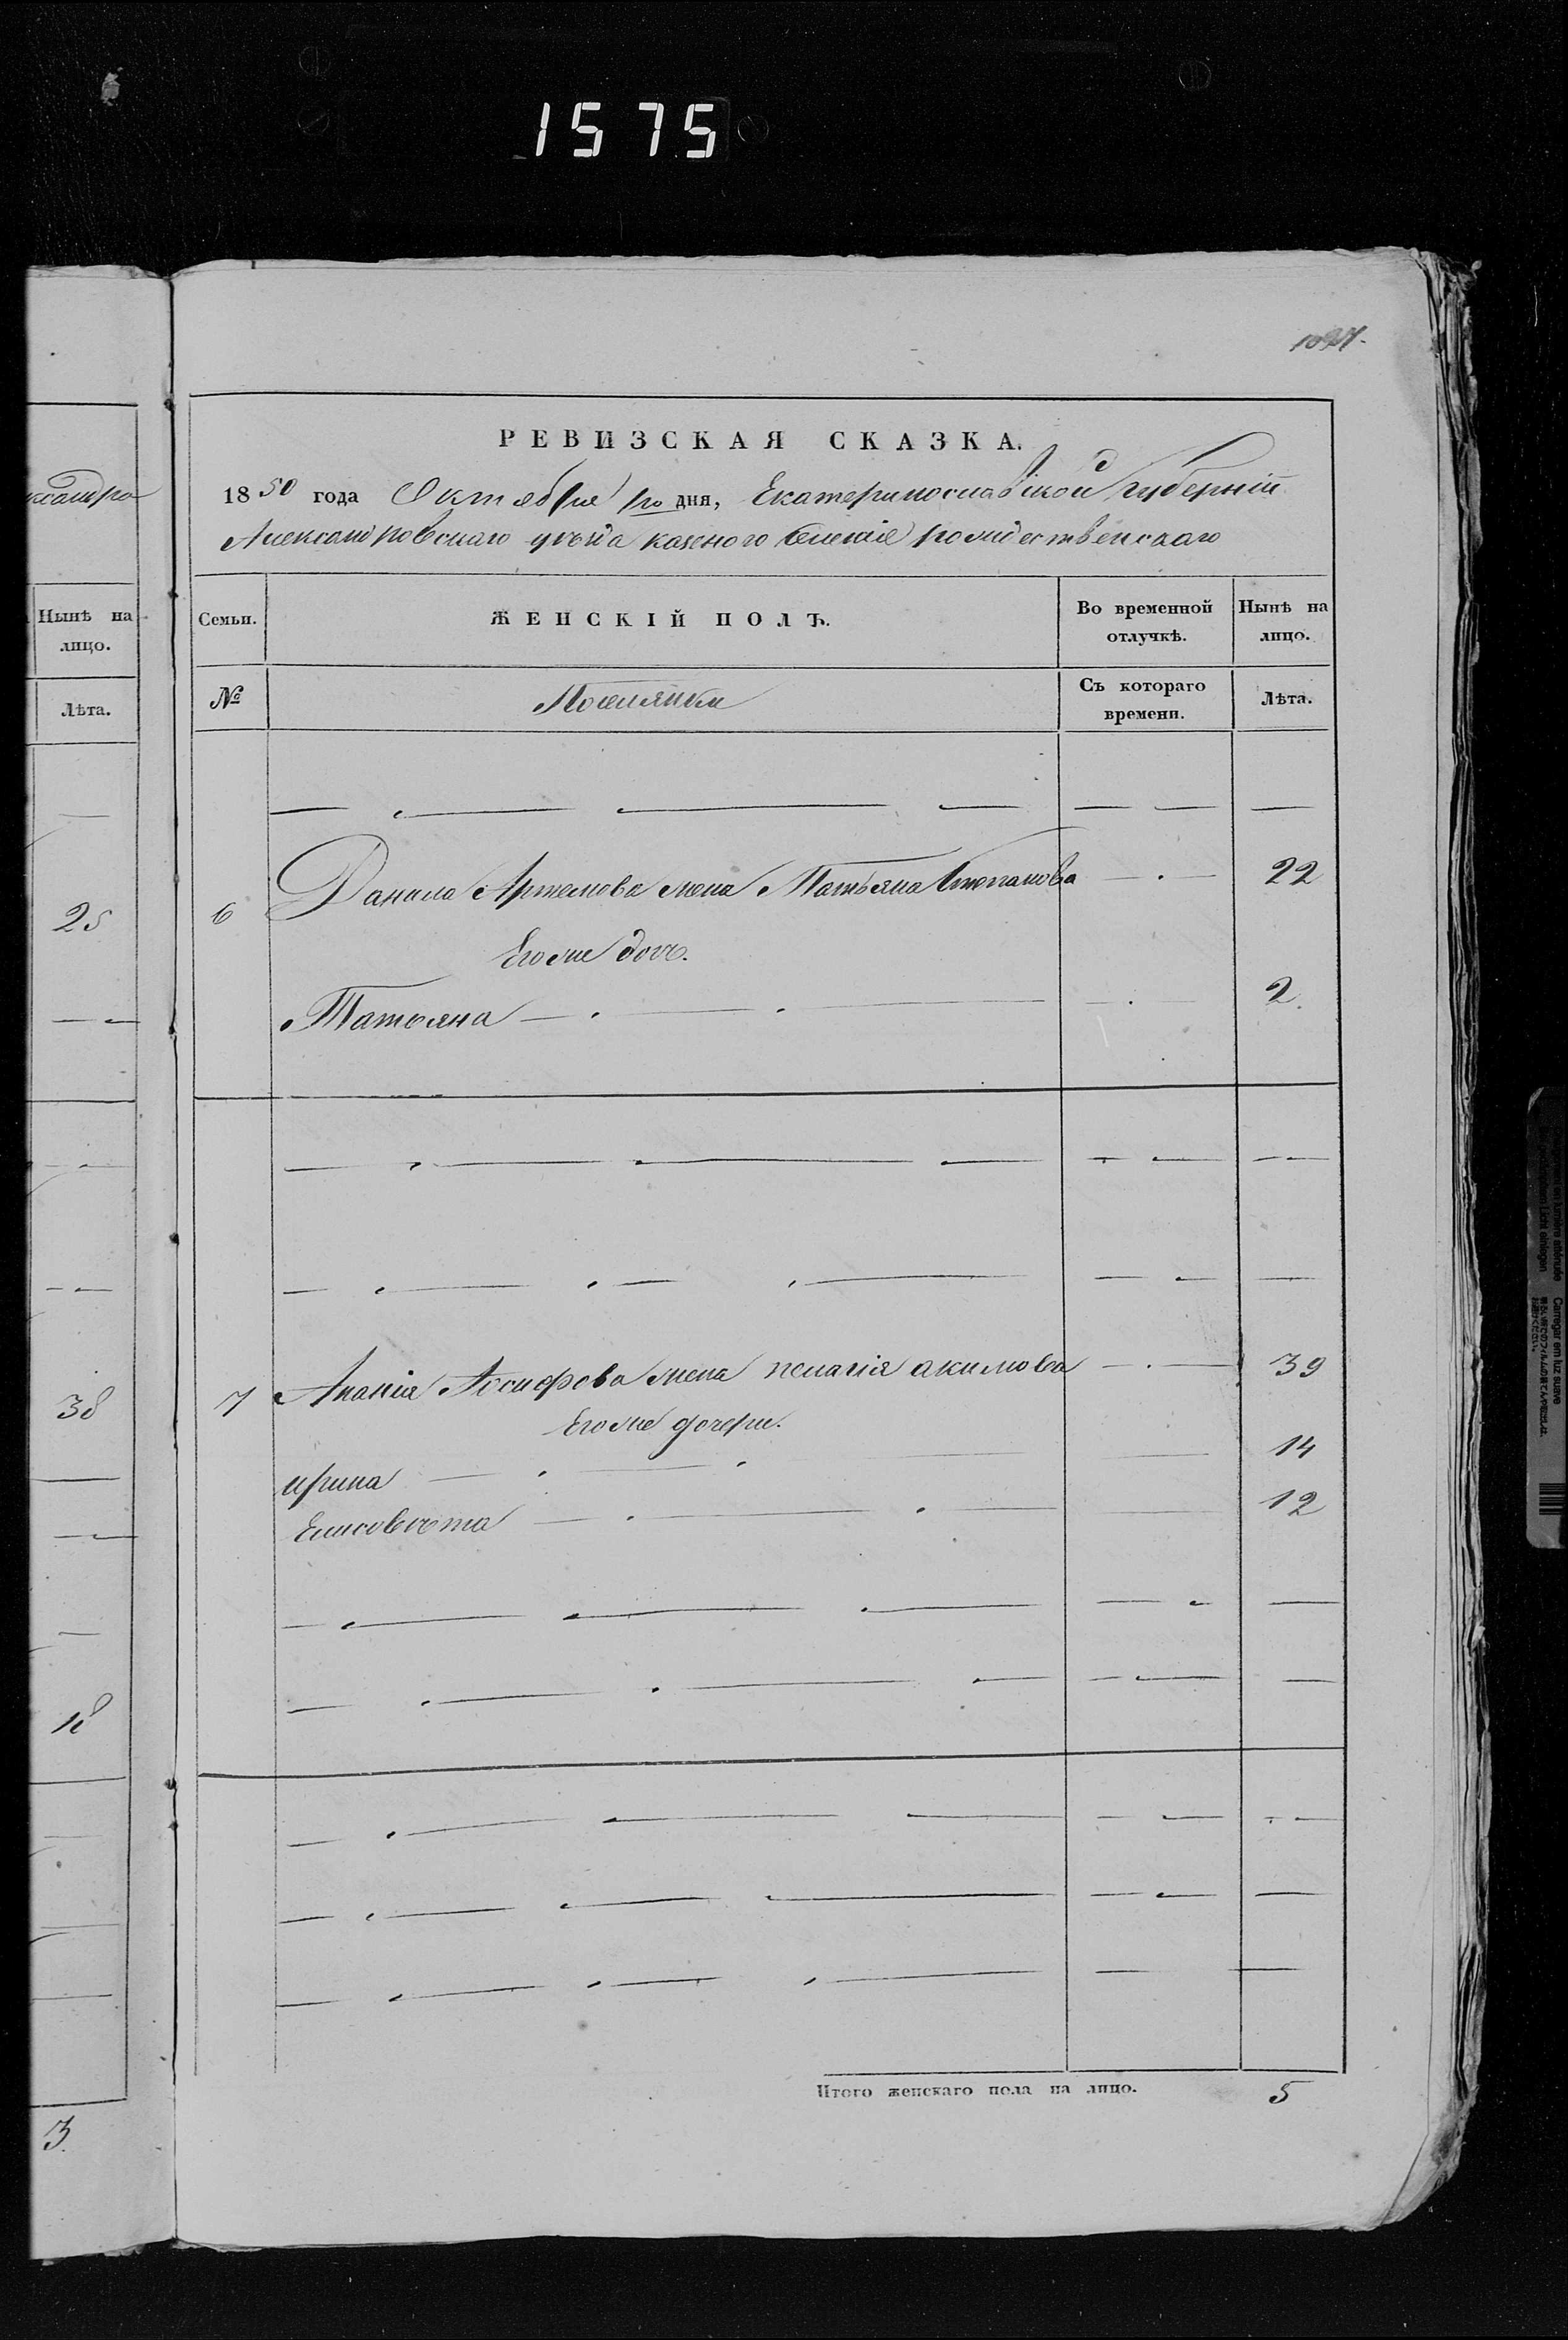 1575
ксандро
Нынѣ на
лицо.
Лѣта.
25
38
18
3
РЕВИЗСКАЯ СКАЗКА.
1850 года Октября дня, Екатеринославской Губерніи
Александровскаго уѣзда казеного рождественскаго
Семьи.
ЖЕНСКІЙ ПОЛЪ.
Во временной
отлучкѣ.
Нынѣ на
лицо.
№
Поселянки
Съ котораго
времени.
Лѣта.
6 Данила Артемова жена Татьяна Степанова 22
Его же дочь.
Татьяна 2
7 Ананія Іосифова жена пелагія акимова 39
Его же дочери.
ирина 14
Елисовѣта 12
Итого женскаго пола на лицо. 5